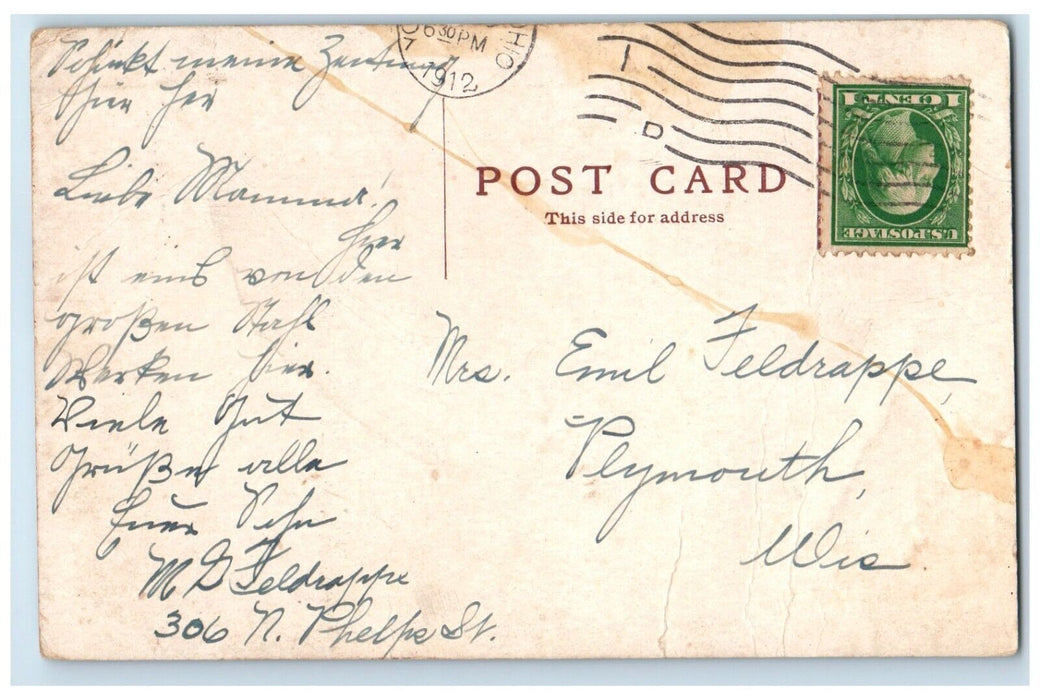 Schickt meine Zeitung
hier her
Liebe Mamma!
Hier
ist eins von den
großen Stahl
Werken hier.
Viele Gut
Grüße alle
Euer Sohn
M D Feldrappe
306 N. Phelps St.
630 PM
1912
OHIO
POST CARD
This side for address
1 CENT 1
U.S. POSTAGE
Mrs. Emil Feldrappe,
Plymouth,
Wis